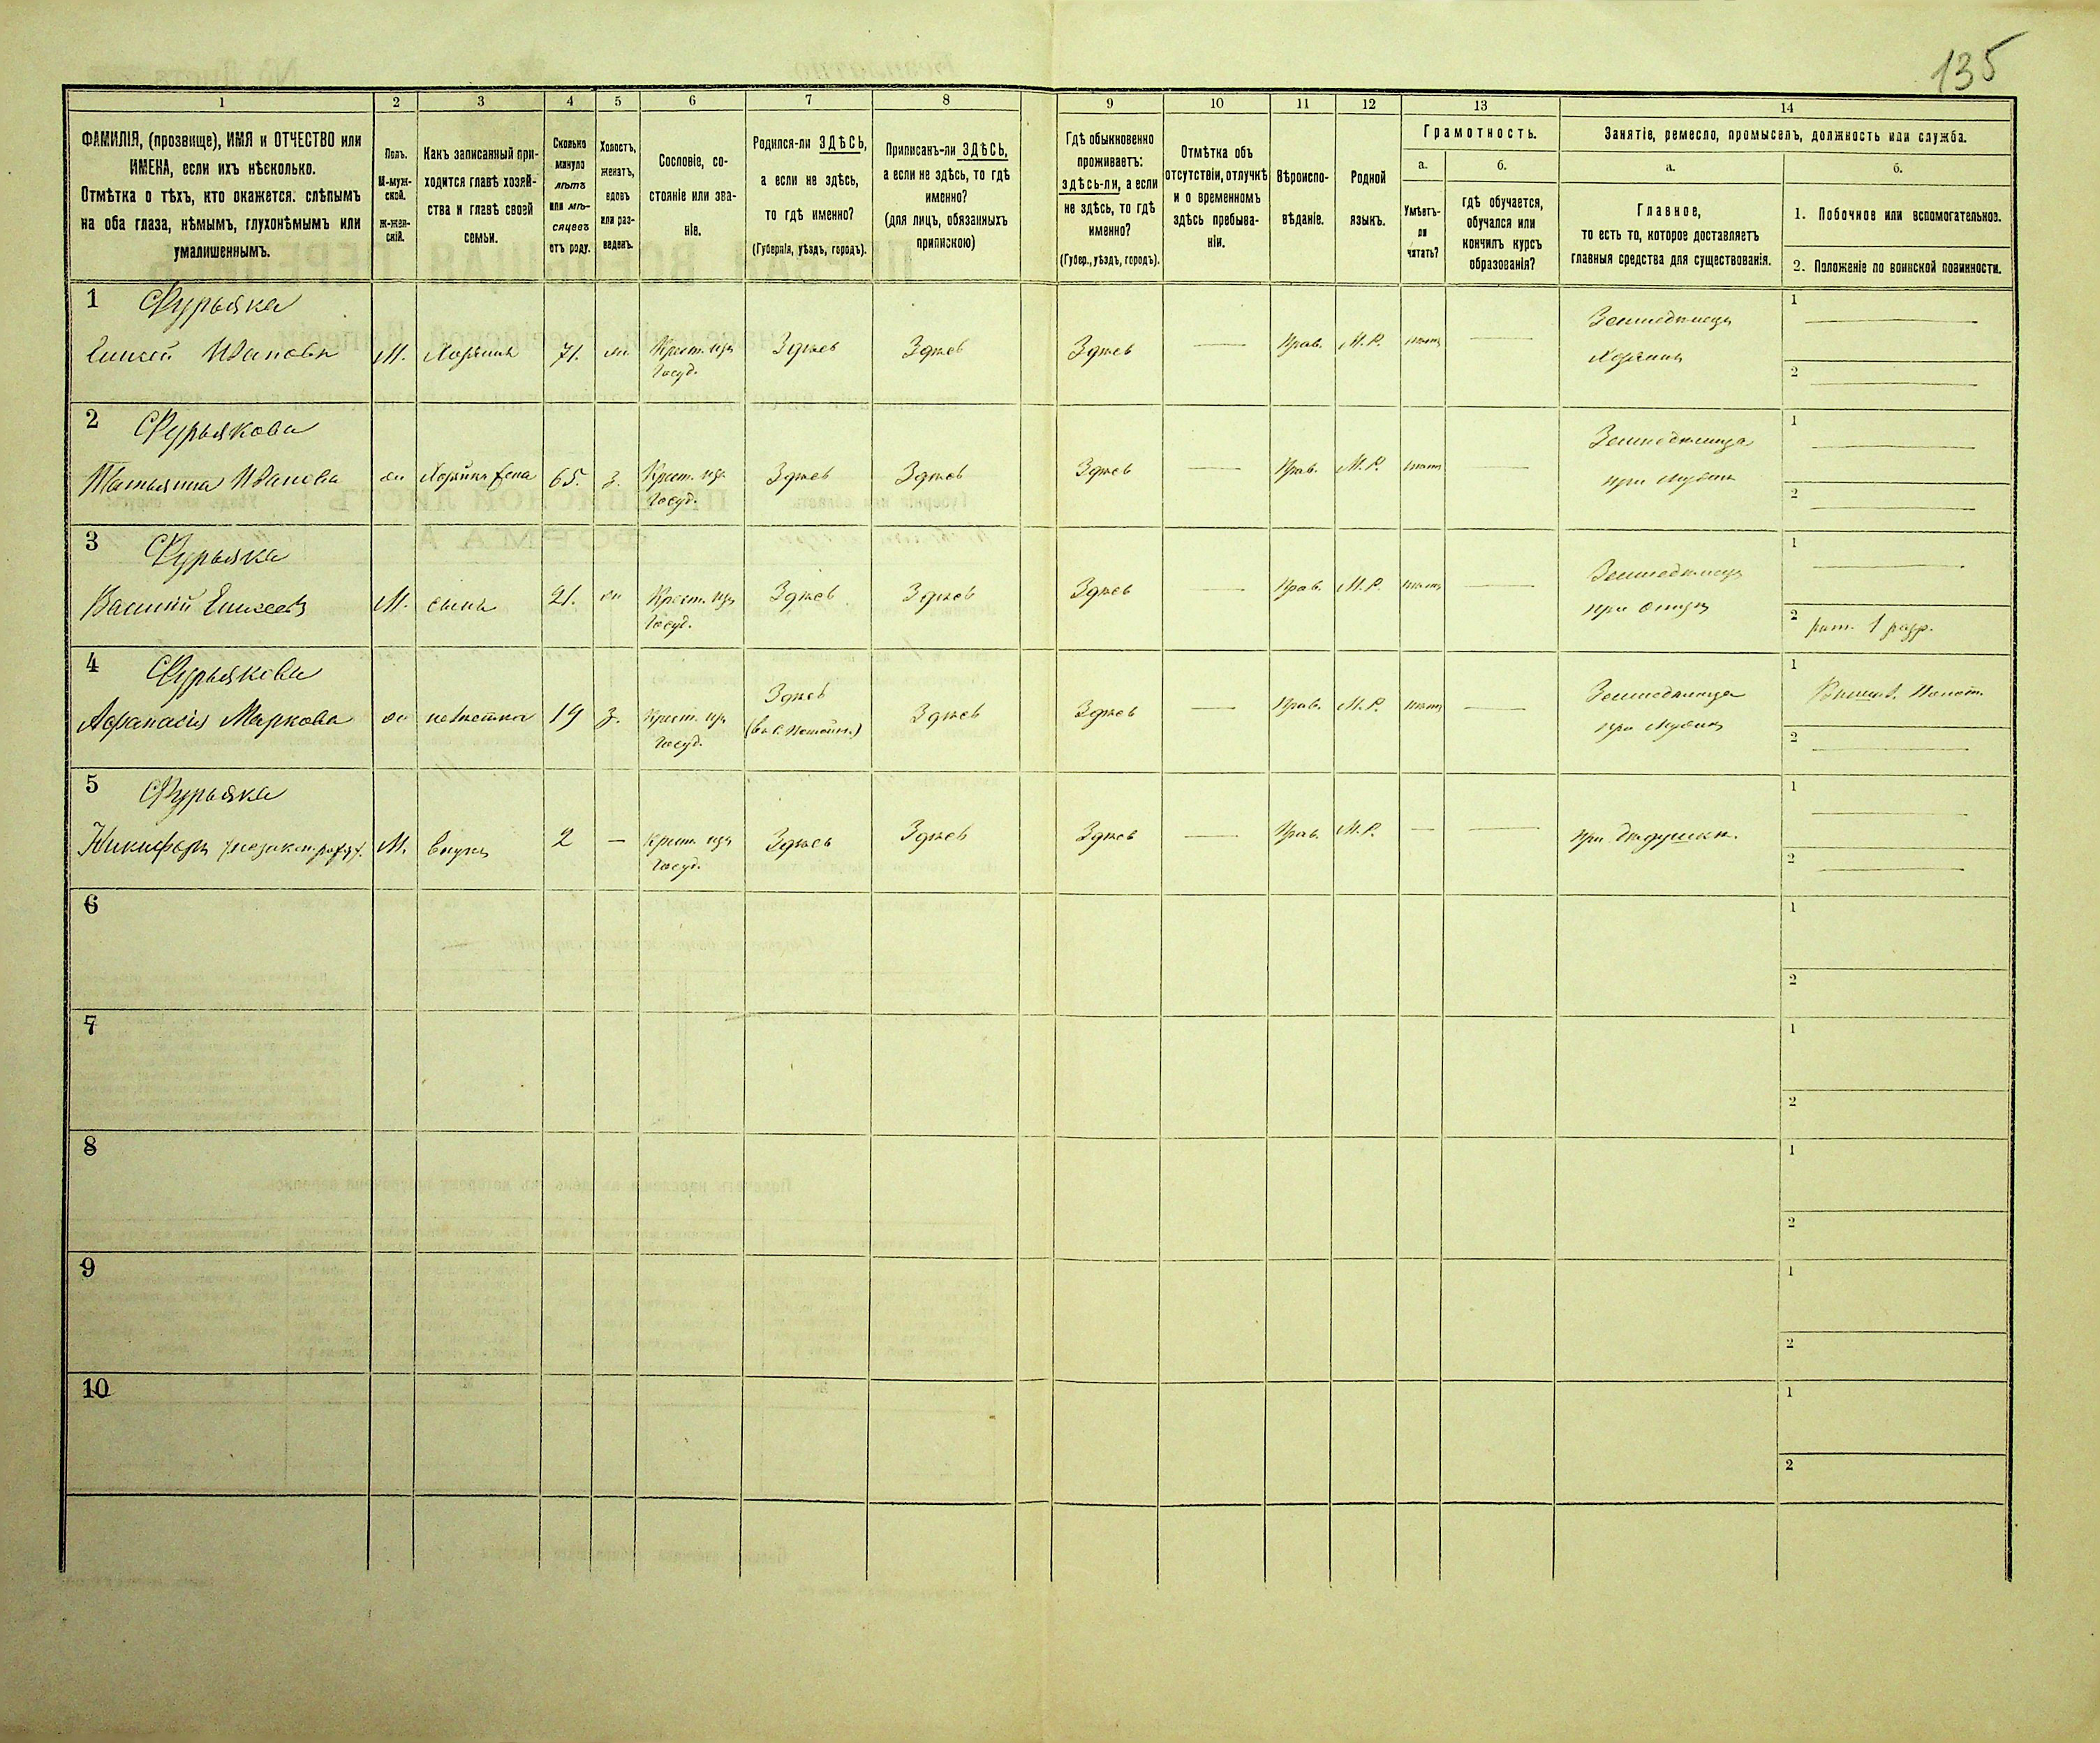 135
1 2 3 4 5 6 7 8 9 10 11 12 13 14
ФАМИЛІЯ, (прозвище), ИМЯ и ОТЧЕСТВО или
ИМЕНА, если ихъ нѣсколько.
Отмѣтка о тѣхъ, кто окажется: слѣпымъ
на оба глаза, нѣмымъ, глухонѣмымъ или
умалишеннымъ.
Полъ.
М-муж-
ской.
ж-жен-
скій.
Какъ записанный при-
ходится главѣ хозяй-
ства и главѣ своей
семьи.
Сколько
минуло
лѣтъ
или мѣ-
сяцевъ
отъ роду.
Холостъ,
женатъ,
вдовъ
или раз-
веденъ.
Сословіе, со-
стояніе или зва-
ніе.
Родился-ли ЗДѢСЬ,
а если не здѣсь,
то гдѣ именно?
(Губернія, уѣздъ, городъ).
Приписанъ-ли ЗДѢСЬ,
а если не здѣсь, то гдѣ
именно?
(для лицъ, обязанныхъ
припискою)
Гдѣ обыкновенно
проживаетъ:
здѣсь-ли, а если
не здѣсь, то гдѣ
именно?
(Губер., уѣздъ, городъ).
Отмѣтка объ
отсутствіи, отлучкѣ
и о временномъ
здѣсь пребыва-
ніи.
Вѣроиспо-
вѣданіе.
Родной
языкъ.
Грамотность.
а.
Умѣетъ-
ли
читать?
б.
гдѣ обучается,
обучался или
кончилъ курсъ
образованія?
Занятіе, ремесло, промыселъ, должность или служба.
а.
Главное,
то есть то, которое доставляетъ
главныя средства для существованія.
б.
1. Побочное или вспомогательное.
2. Положеніе по воинской повинности.
1 Фурьяка
Елисей Ивановъ М. Хозяинъ 71. Крест. изъ Госуд. Здѣсь Здѣсь Здѣсь — Прав. М.Р. нѣтъ — Земледѣлецъ Хозяинъ
1 —
2 —
2 Фурьякова
Татьяна Иванова ж Хозяина жена 65. з. Крест. изъ Госуд. Здѣсь Здѣсь Здѣсь — Прав. М.Р. нѣтъ — Земледѣлица при мужѣ
1 —
2 —
3 Фурьяка
Василій Елисеевъ М. сынъ 21. ж Крест. изъ Госуд. Здѣсь Здѣсь Здѣсь — Прав. М.Р. нѣтъ — Земледѣлецъ при отцѣ
1 —
2 рат. 1 разр.
4 Фурьякова
Афанасія Маркова ж невѣстка 19 з. Крест. изъ Госуд. Здѣсь Здѣсь Здѣсь — Прав. М.Р. нѣтъ — Земледѣлица при мужѣ
1
2 —
5 Фурьяка
Никифоръ М. внукъ 2 — Крест. изъ Госуд. Здѣсь Здѣсь Здѣсь — Прав. М.Р. — — при дѣдушкѣ.
1 —
2 —
6
1
2
7
1
2
8
1
2
9
1
2
10
1
2